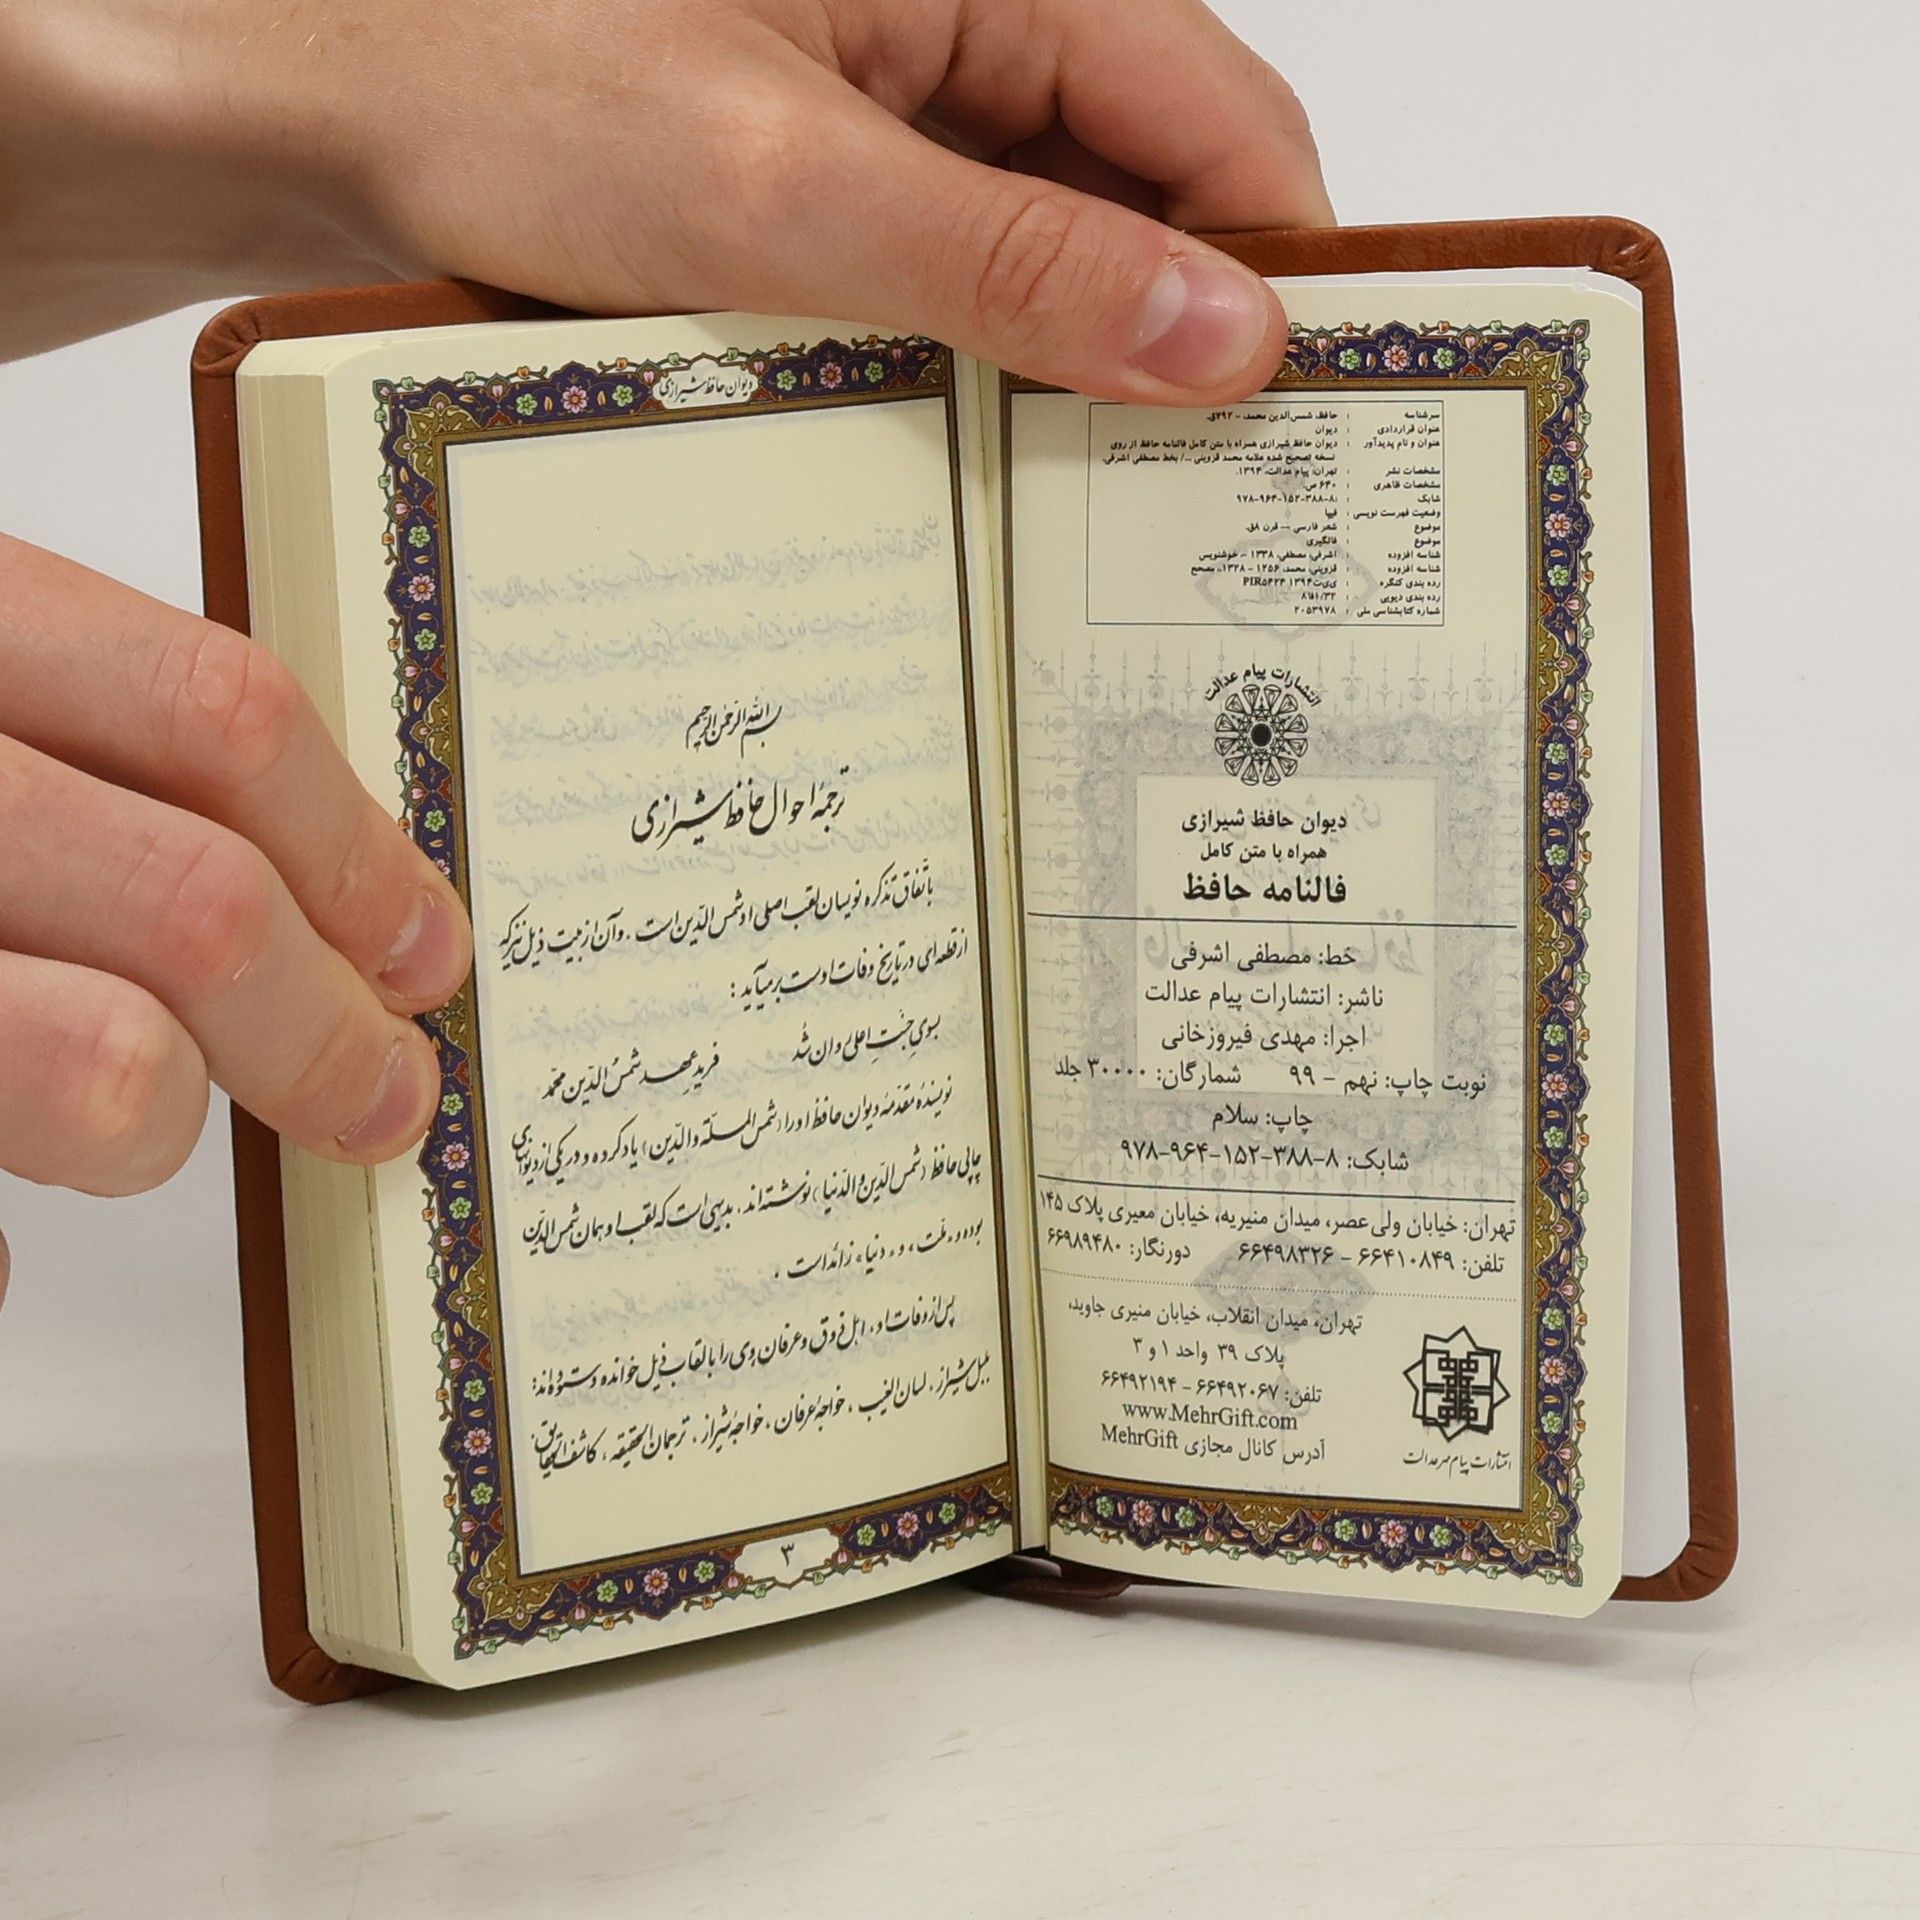 سرشناسه : حافظ، شمس‌الدین محمد، - ۷۹۲ق.
عنوان قراردادی : دیوان
عنوان و نام پدیدآور : دیوان حافظ شیرازی همراه با متن کامل فالنامه حافظ از روی
نسخه تصحیح شده علامه محمد قزوینی .../ بخط مصطفی اشرفی.
مشخصات نشر : تهران: پیام عدالت، ۱۳۹۴.
مشخصات ظاهری : ۶۴۰ ص.
شابک : ۹۷۸-۹۶۴-۱۵۲-۳۸۸-۸
وضعیت فهرست نویسی : فیپا
موضوع : شعر فارسی -- قرن ۸ق.
موضوع : فالگیری
شناسه افزوده : اشرفی، مصطفی، ۱۳۳۸ - ، خوشنویس
شناسه افزوده : قزوینی، محمد، ۱۲۵۶ - ۱۳۲۸.، مصحح
رده بندی کنگره : PIR۵۴۲۴ ۱۳۹۴
رده بندی دیویی : ۸فا۱/۳۲
شماره کتابشناسی ملی : ۲۰۵۳۹۷۸
انتشارات پیام عدالت
دیوان حافظ شیرازی
همراه با متن کامل
فالنامه حافظ
خط: مصطفی اشرفی
ناشر: انتشارات پیام عدالت
اجرا: مهدی فیروزخانی
نوبت چاپ: نهم - ۹۹ شمارگان: ۳۰۰۰۰ جلد
چاپ: سلام
شابک: ۸-۳۸۸-۱۵۲-۹۶۴-۹۷۸
تهران: خیابان ولی عصر، میدان منیریه، خیابان معیری پلاک ۱۴۵
تلفن: ۶۶۴۱۰۸۴۹ - ۶۶۴۹۸۳۲۶ دورنگار: ۶۶۹۸۹۴۸۰
تهران، میدان انقلاب، خیابان منیری جاوید،
پلاک ۳۹ واحد ۱ و ۳
تلفن: ۶۶۴۹۲۰۶۷ - ۶۶۴۹۲۱۹۴
www.MehrGift.com
آدرس کانال مجازی MehrGift
انتشارات پیام مهر عدالت
دیوان حافظ شیرازی
بسم الله الرحمن الرحیم
ترجمهٔ احوال حافظ شیرازی
باتّفاق تذکره نویسان لقب اصلی او شمس الدّین است. و آن از بیت ذیل نیز که
از قطعه‌ای در تاریخ وفات اوست بر میآید:
بسوی جنّتِ اعلی روان شد فریدِ عهد شمسُ الدّین محمّد
نویسندهٔ مقدّمه دیوان حافظ او را (شمس الملّة والدّین) یاد کرده و در یکی از دیوانهای
چاپی حافظ (شمس الدّین والدّنیا) نوشته‌اند. بدیهی است که لقب او همان شمس الدّین
بوده و «ملّت» و «دنیا» زائد است.
پس از وفات او، اهل ذوق و عرفان وی را بالقاب ذیل خوانده و ستوده‌اند:
بلبل شیراز، لسان الغیب، خواجهٔ عرفان، خواجهٔ شیراز، ترجمان الحقیقه، کاشف الحقایق،
۳